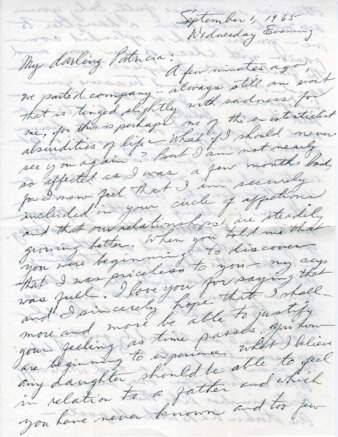 September 1, 1965
Wednesday Evening
My darling Patricia:
A few minutes ago
we parted company - always still an event
that is tinged slightly with sadness for
me, for this is perhaps one of the existentialist
absurdities of life - What if I should never
see you again? But I am not nearly
so affected as I was a few months back
for I now feel that I am securely
included in your circle of affections
and that our relationships are steadily
growing better. When you told me that
you were beginning to discover
that I was priceless to you - my cup
was full. I love you for saying that
and I sincerely hope that I shall
more and more be able to justify
your feeling as time passes. You now
are beginning to experience what I believe
any daughter should be able to feel
in relation to a father and which
you have never known and too few